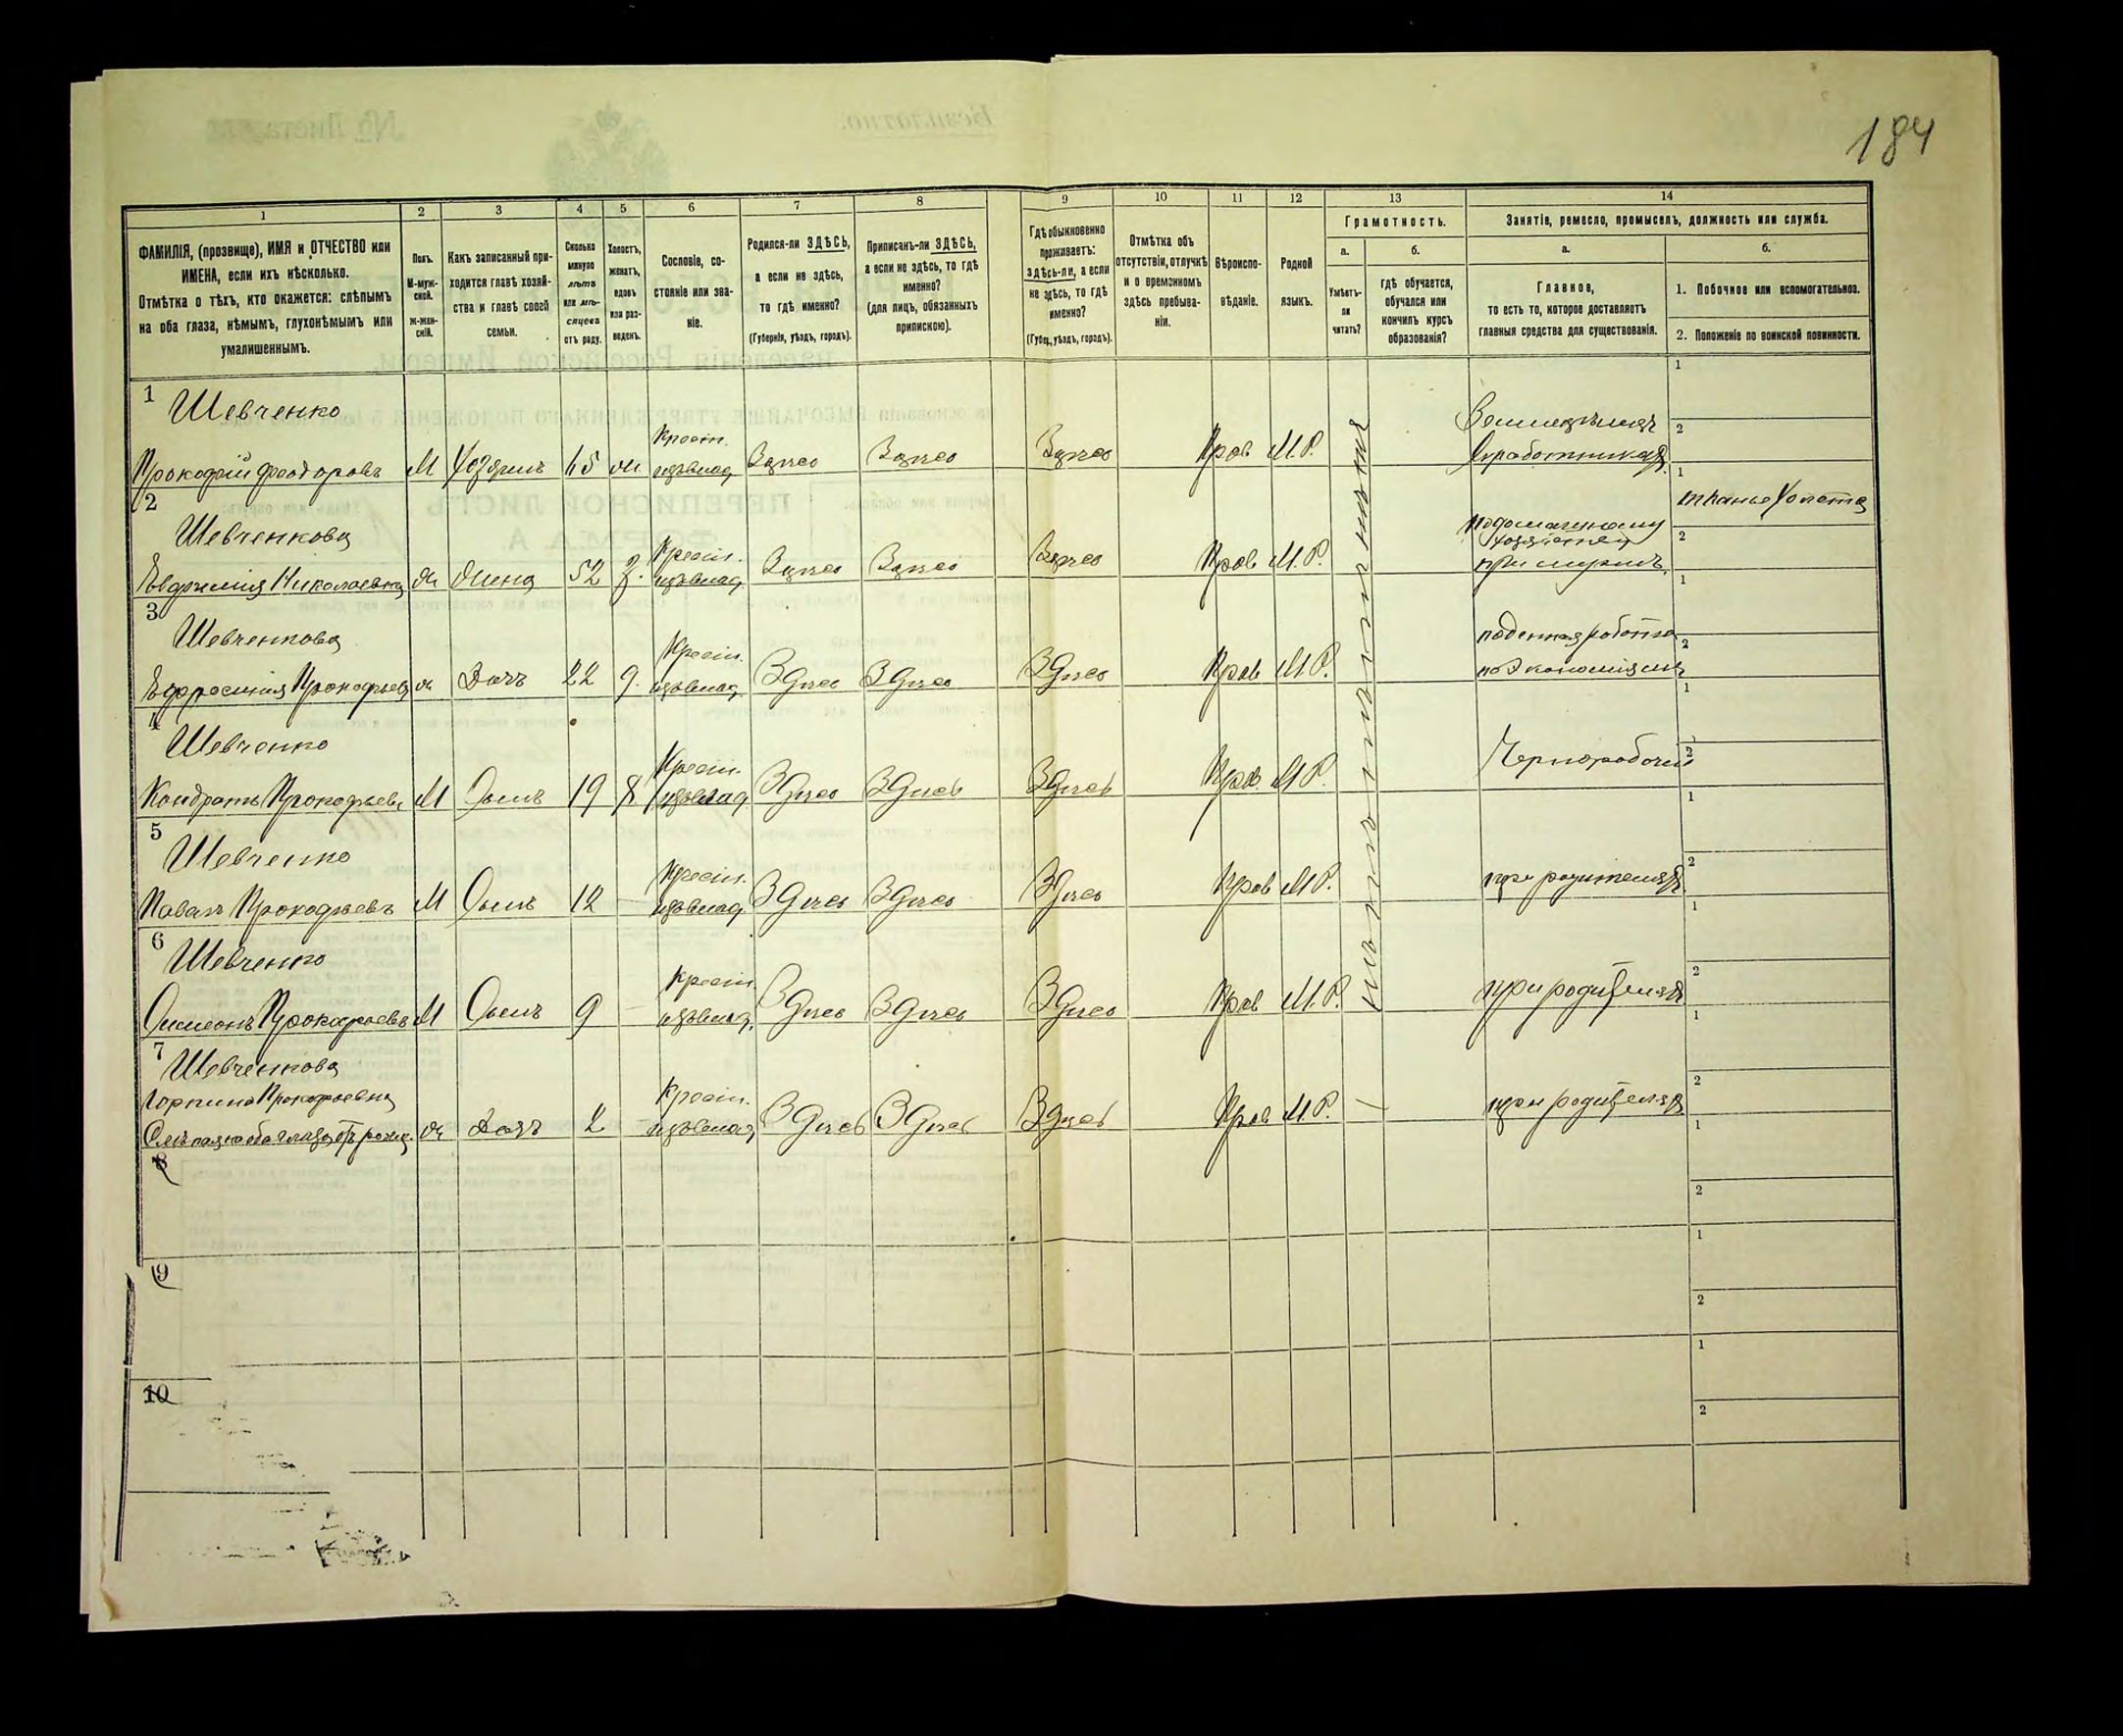 184
1
2
3
4
5
6
7
8
9
10
11
12
13
14
ФАМИЛІЯ, (прозвище), ИМЯ и ОТЧЕСТВО или
ИМЕНА, если ихъ нѣсколько.
Отмѣтка о тѣхъ, кто окажется: слѣпымъ
на оба глаза, нѣмымъ, глухонѣмымъ или
умалишеннымъ.
Полъ.
М-муж-
ской.
Ж-жен-
скій.
Какъ записанный при-
ходится главѣ хозяй-
ства и главѣ своей
семьи.
Сколько
минуло
лѣтъ
или мѣ-
сяцевъ
отъ роду.
Холостъ,
женатъ,
вдовъ
или раз-
веденъ.
Сословіе, со-
стояніе или зва-
ніе.
Родился-ли ЗДѢСЬ,
а если не здѣсь,
то гдѣ именно?
(Губернія, уѣздъ, городъ).
Приписанъ-ли ЗДѢСЬ,
а если не здѣсь, то гдѣ
именно?
(для лицъ, обязанныхъ
припискою).
Гдѣ обыкновенно
проживаетъ:
здѣсь-ли, а если
не здѣсь, то гдѣ
именно?
(Губер., уѣздъ, городъ).
Отмѣтка объ
отсутствіи, отлучкѣ
и о временномъ
здѣсь пребыва-
ніи.
Вѣроиспо-
вѣданіе.
Родной
языкъ.
Грамотность.
а.
б.
Умѣетъ-
ли
читать?
гдѣ обучается,
обучался или
кончилъ курсъ
образованія?
Занятіе, ремесло, промыселъ, должность или служба.
а.
б.
Главное,
то есть то, которое доставляетъ
главныя средства для существованія.
1. Побочное или вспомогательное.
2. Положеніе по воинской повинности.
1
Шевченко
Прокофій Феодоровъ М Хозяинъ 65 Крест. Здѣсь Здѣсь Здѣсь Прав М.Р.
2
Шевченкова
Евфимія Николаевна ж жена 52 Крест. Здѣсь Здѣсь Здѣсь Прав М.Р. при мужѣ
тканье холста
3
Шевченкова
Ефросинія Прокофьева ж Дочь 22 Крест. Здѣсь Здѣсь Здѣсь Прав М.Р. поденная работа
4
Шевченко
Кондратъ Прокофьевъ М Сынъ 19 Х Крест. Здѣсь Здѣсь Здѣсь Прав. М.Р. Чернорабочій
5
Шевченко
Павелъ Прокофьевъ М Сынъ 12 Крест. Здѣсь Здѣсь Здѣсь Прав М.Р. при родителяхъ
6
Шевченко
Симеонъ Прокофьевъ М Сынъ 9 Крест. Здѣсь Здѣсь Здѣсь Прав М.Р. при родителяхъ
7
Шевченкова
Горпина Прокофьевна
Слѣпая на оба глаза отъ рожд. ж Дочь 2 Крест. Здѣсь Здѣсь Здѣсь Прав М.Р. при родителяхъ
8
9
10